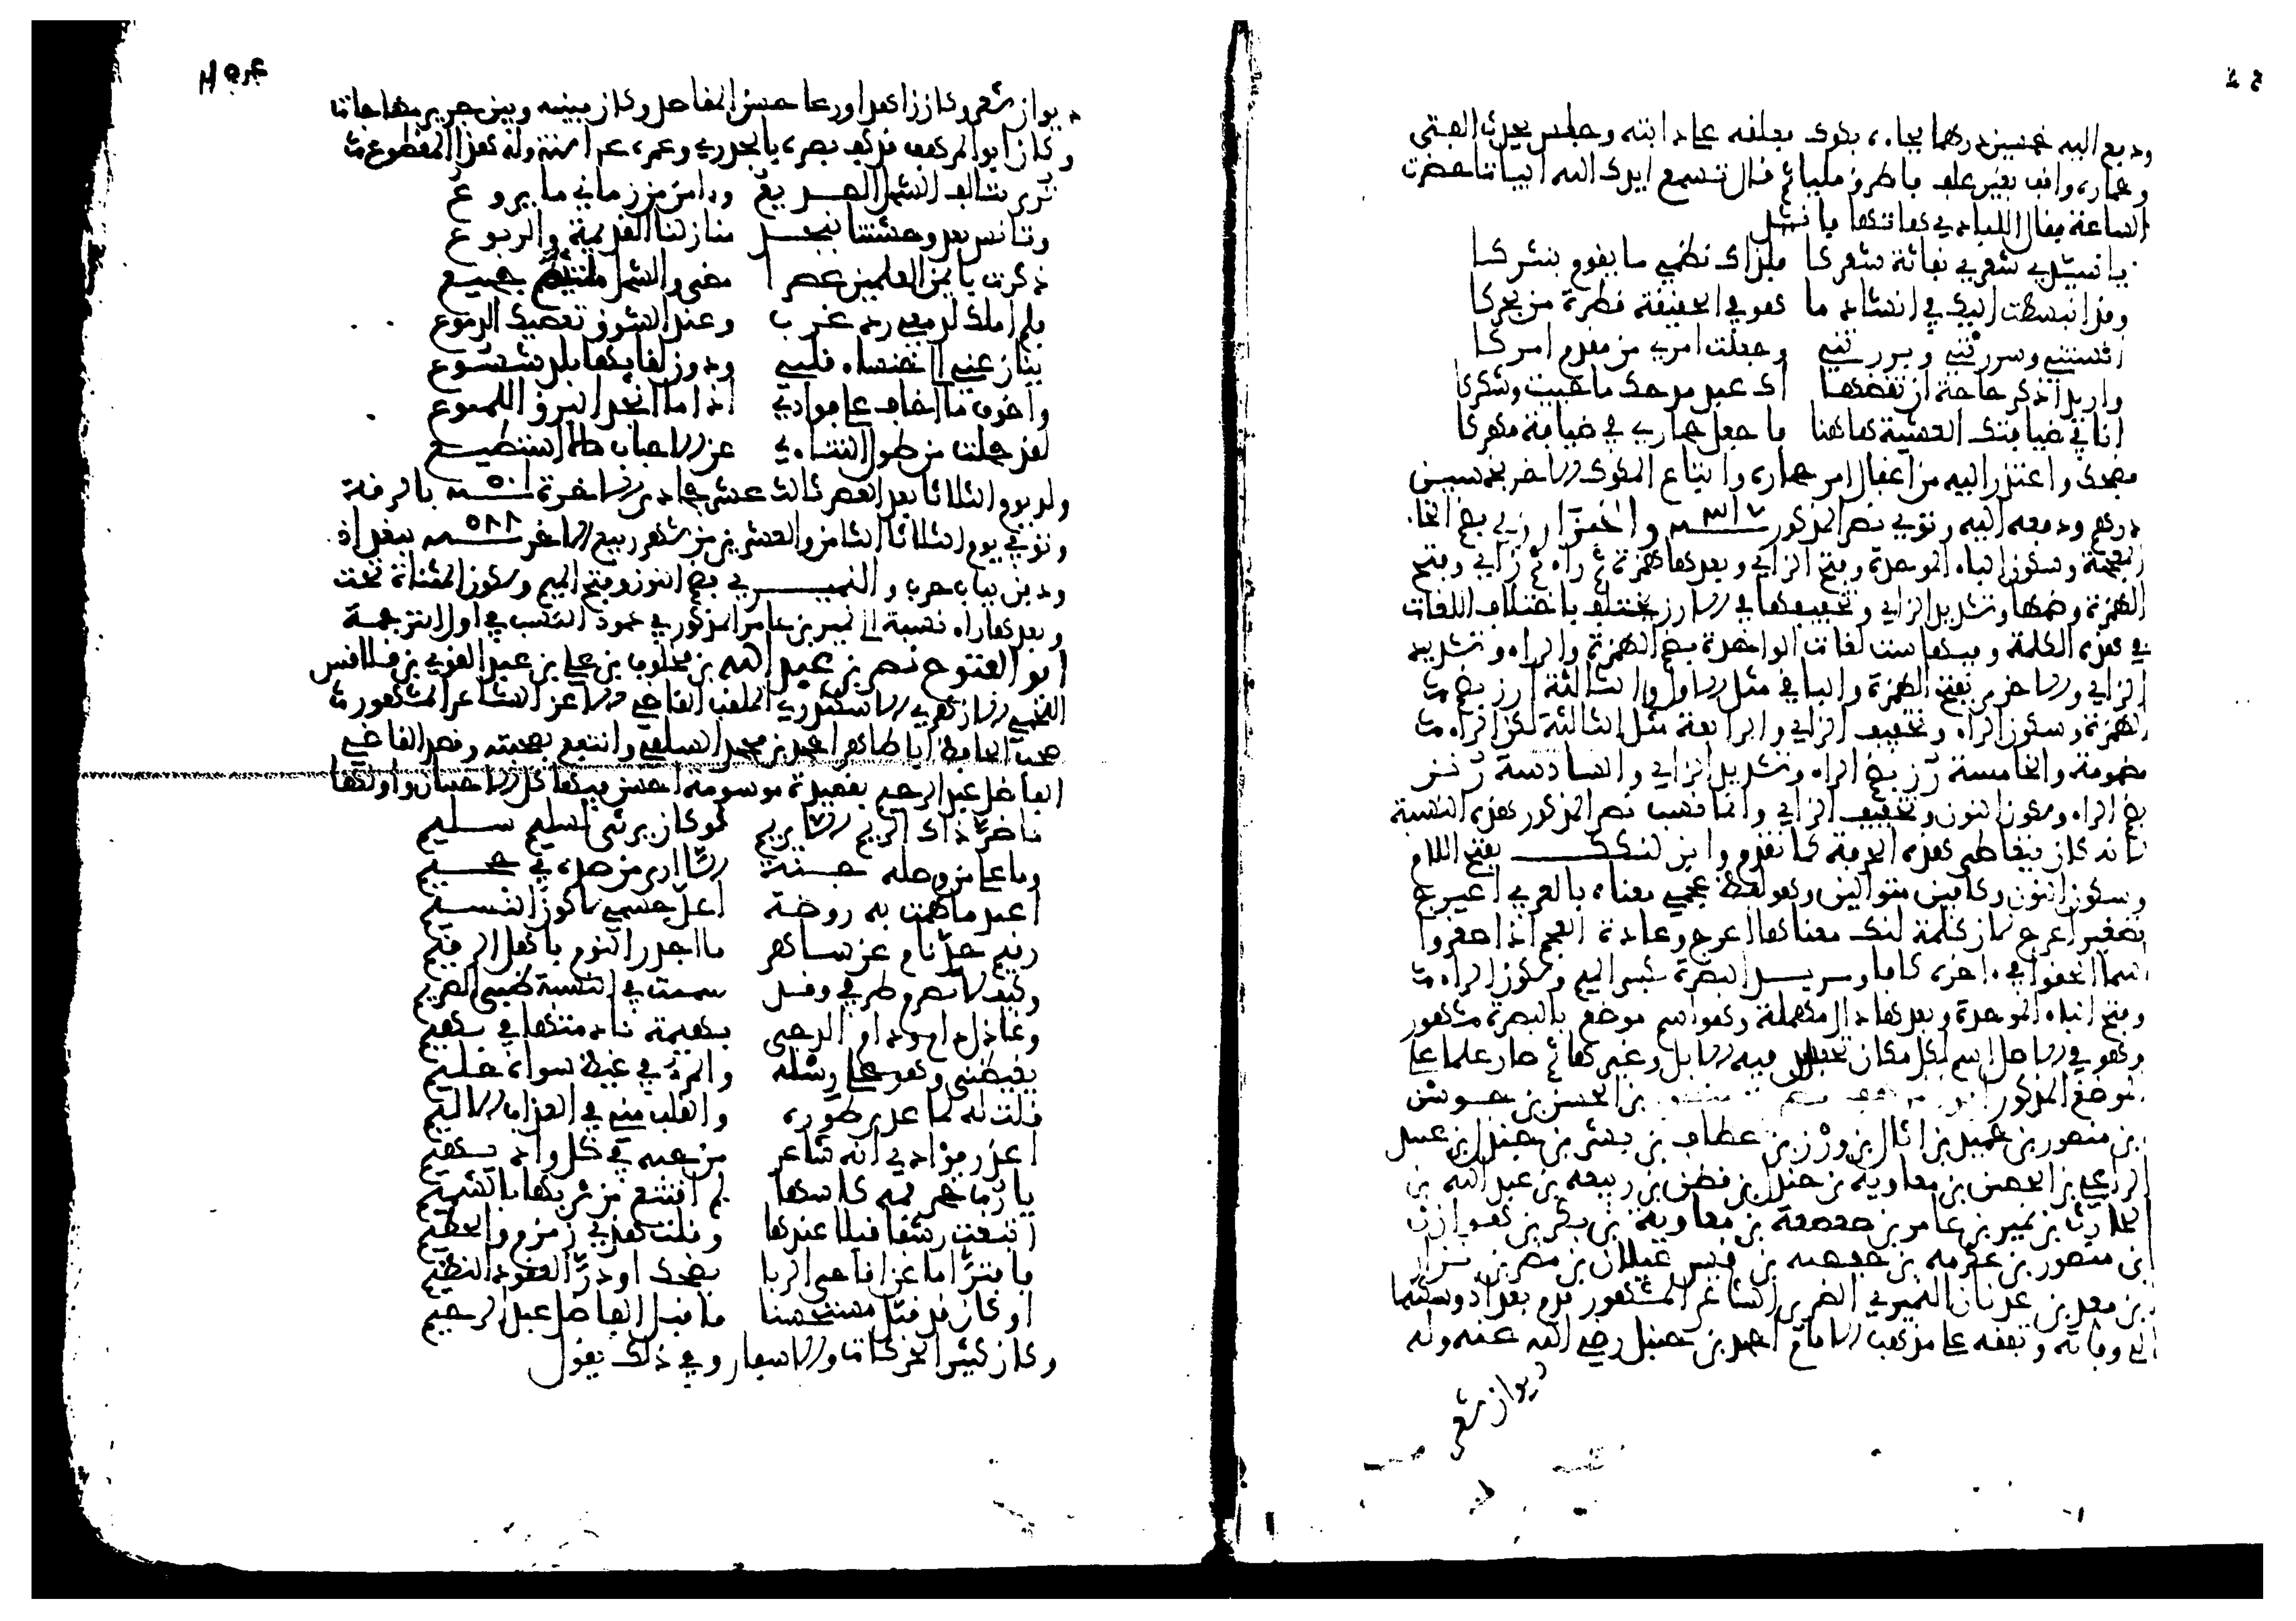 ودفع اليه خمسين درهما فجاءه بلوى فعلفه على دابته وجلس يحدث الفتى
وحماره واقف بغير علف فاطرق مليا ثم قال تسمع ايدك الله ابياتا حضرت
الساعة فقال اللبادي هاتها فانشد
يا سيدي شعري نفاثة شعركا فلذاك نظمي ما يقوم بنثركا
وقد انبسطت اليك في انشاد ما هو في الحقيقة قطرة من بحركا
انستني وسررتني وبررتني وجعلت امري من مقدم امركا
واريد اذكر حاجة ان تقضها اك عبد مدحك ما حييت وشكركا
انا في ضيافتك العشية هاهنا فاجعل حماري في ضيافة مهركا
فضحك واعتذر اليه من اغفال امر حماره وابتاع اللوى الاخر بخمسين
درهم ودفعه اليه وتوفي نصر المذكور سنة ٣١٧ والخبز ارزي بضم الخاء
المعجمة وسكون الباء الموحدة وفتح الزاي وبعدها همزة ثم راء ثم زاي وفتح
الهمزة وضمها وتشديد الزاي وتخفيفها في الارز يختلف باختلاف اللغات
في هذه الكلمة وفيها ست لغات الواحدة بضم الهمزة والراء وتشديد
الزاي والاخرى بفتح الهمزة والباقي مثل الاول والثالثة ارز بضم
الهمزة وسكون الراء وتخفيف الزاي والرابعة مثل الثالثة لكن الراء
مضمومة والخامسة رز بضم الراء وتشديد الزاي والسادسة رنز
بضم الراء وسكون النون وتخفيف الزاي وانما نسب نصر المذكور هذه النسبة
لانه كان يتعاطى هذه الحرفة كما تقدم وابن لنكك بفتح اللام
وسكون النون وكافين متوالين وهو لفظ عجمي معناه بالعربي اعيرج
تصغير اعرج لان كلمة لنك معناها اعرج وعادة العجم اذا صغروا
اسما الحقوا في اخره كافا ومربد البصرة بكسر الميم وسكون الراء
وفتح الباء الموحدة وبعدها دال مهملة وهو اسم موضع بالبصرة مشهور
وهو في الاصل اسم لكل مكان تحبس فيه الابل وغيرها ثم صار علما على
الموضع المذكور ابو المرهف نصر بن الحسن بن جوشن
بن منصور بن حميد بن اثال بن وزر بن عطاف بن بشر بن جندل بن عبيد
الراعي بن الحصين بن معاوية بن جندل بن قطن بن ربيعه بن عبد الله بن
الحارث بن نمير بن عامر بن صعصعة بن معاوية بن بكر بن هوازن
بن منصور بن عكرمه بن خصفه بن قيس عيلان بن مضر بن نزار
بن معد بن عدنان النميري الضرير الشاعر المشهور قدم بغداد وسكنها
الى وفاته وتفقه على مذهب الامام احمد بن حنبل رضي الله عنه وله
ديوان شعر
ديوان شعر وكان زاهدا ورعا حسن المقاصد وكان بينه وبين جرير مهاجات
وكان ابو المرهف قد كف بصره بالجدري وعمره سنة وله هذا المقطوع
ترى يتالف الشمل الصديع وءامن من زماني ما يروع
وتانس بعد وحشتنا بنجد منازلنا القديمة والربوع
ذكرت بايمن العلمين عصرا مضى والشمل ملتئم جميع
فلم املك لدمعي رد غرب وعند الشوق تعصيك الدموع
ينازعني الى خنساء قلبي ودون لقايها بلد شسوع
واخوف ما اخاف على فوادي اذا ما انجد البرق اللموع
لقد حملت من طول التنائي عن الاحباب ما لا استطيع
ولد يوم الثلاثا بعد العصر ثالث عشر جمادى الاخرة سنة ٥٠١ بالرقة
وتوفي يوم الثلاثا الثامن والعشرين من شهر ربيع الاخر سنة ٥٨٨ ببغداد
ودفن بباب حرب والنميري بضم النون وفتح الميم وسكون المثناة تحت
وبعدها راء نسبة الى نمير بن عامر المذكور في عمود النسب في اول الترجمة
ابو الفتوح نصر بن عبد الله بن مخلوف بن علي بن عبد القوي بن قلاقس
اللخمي الازهري الاسكندري الملقب القاضي الاعز الشاعر المشهور
صحب الحافظ ابا طاهر احمد بن محمد السلفي وانتفع بصحبته وقصد القاضي
الفاضل عبد الرحيم بقصيدة موسومة احسن فيها كل الاحسان واولها
ما ضر ذاك الريم الا يريم لو كان يرثي لسليم سليم
وما على من وصله جنة الا ارى من صده في جحيم
اعيد ما همت به روضة اعل جسمي لاكون النسيم
رقيم خد نام عن ساهر ما اجدر النوم باهل الرقيم
وكيف لا تصرم ظبي وقد سمعت في النسبة ظبي الصريم
وعاذل دام ودام الدجى بهيمة نادمتها في بهيم
يغيظني وهو على رسله والمرء في غيظ سواه حليم
قلت له لما عدى طوره والقلب مني في العذاب الاليم
اعذر فؤادي انه شاعر من حبه في كل واد يهيم
يا رب خمر فمه كاسها لم اقتنع من شربها بالشميم
اتبعت رشفا قبلا عندها وقلت هذي زمزم والحطيم
فافتر اما عن اقاحي الربا يضحك او در العقود النظيم
او كان قد قبل مستحسنا ما قبل الفاضل عبد الرحيم
وكان كثير الحركات والاسفار وفي ذلك يقول